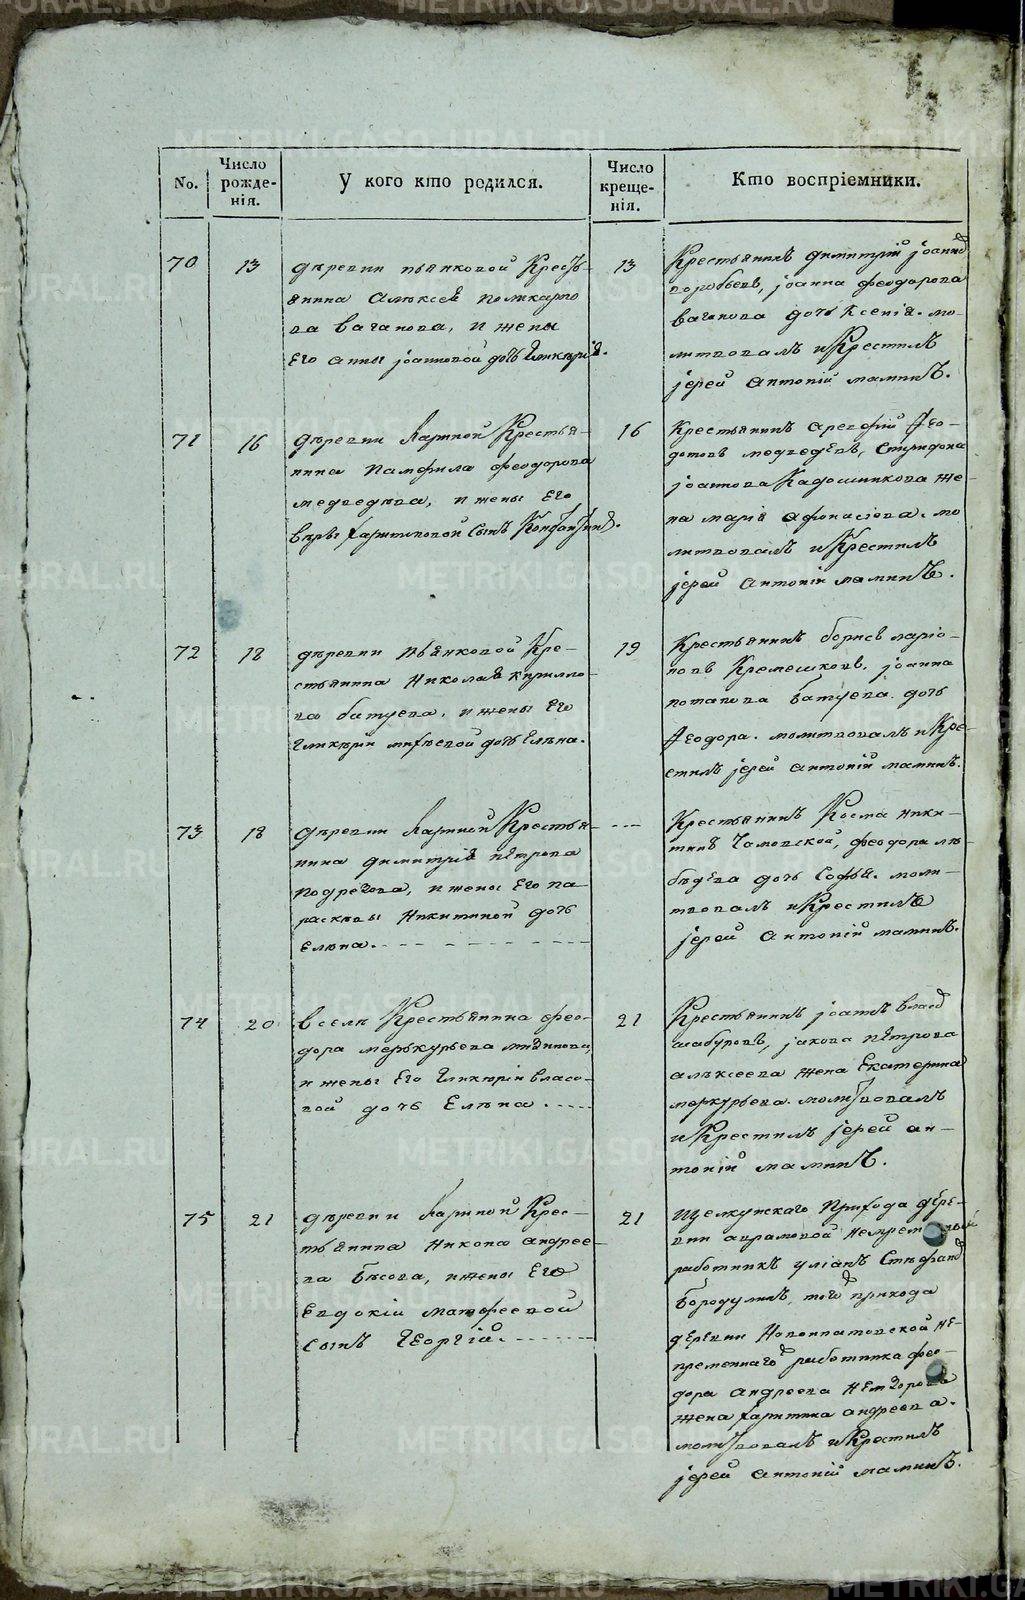 No.
Число рожде-нія.
У кого кто родился.
Число креще-нія.
Кто воспріемники.
70
13
деревни пьянковой Кресть-
янина Алексея поликарпо
ва Ваганова, и жены
Его Анны іоанновой дочь Гликерія.
13
Крестьянинъ димитрій іоанновъ
воробьевъ, іоанна феодорова
Ваганова дочь Ксенія. мо-
литвовалъ и Крестилъ
іерей антоній маминъ.
71
16
деревни Лариной Крестья-
нина Памфила феодорова
медведева, и жены Его
Веры Харитоновой сынъ Константинъ.
16
Крестьянинъ арефій Фео-
дотовъ медведевъ, Спиридона
іоаннова Кадошникова же-
на марія афонасіева. мо
литвовалъ и Крестилъ
іерей антоній маминъ.
72
18
деревни пьянковой Кре-
стьянина Николая Кирилло-
ва батуева, и жены Его
Гликеріи михеевой дочь Елена.
19
Крестьянинъ борисъ ларіо-
новъ Кремешковъ. іоанна
потапова батуева дочь
Феодора. молитвовалъ и Кре-
стилъ іерей антоній маминъ.
73
18
деревни Лариной Крестья-
нина димитрія петрова
подрезова, и жены Его па-
расковы Никитиной дочь
Елена.
Крестьянинъ Косма ники-
тинъ
бъдева дочь Софья. моли-
твовалъ и Крестилъ
іерей антоній маминъ.
74
20
Всели Крестьянина фео-
дора меркурьева
и жены Его Гликеріи власо-
вой дочь Елена.
21
Крестьянинъ іоаннъ
шабуровъ, іакова петрова
алексеева жена Екатерина
меркурьева. молитвовалъ
и Крестилъ іерей ан-
тоній маминъ.
75
21
деревни Лариной Крес-
тьянина Никона андрее
ва Бъсова, и жены Его
Евдокіи матфеевой
сынъ Георгій.
21
Щелкунскаго Прихода дере-
вни аврамовой
работникъ уліанъ Стефановъ
Бородулинъ, той прихода
деревни Новоипатовской не-
премѣннаго работника фео-
дора андреева
жена Харитина андреева.
молитвовалъ и Крестилъ
іерей антоній маминъ.
METRIKI.GASO-URAL.RU